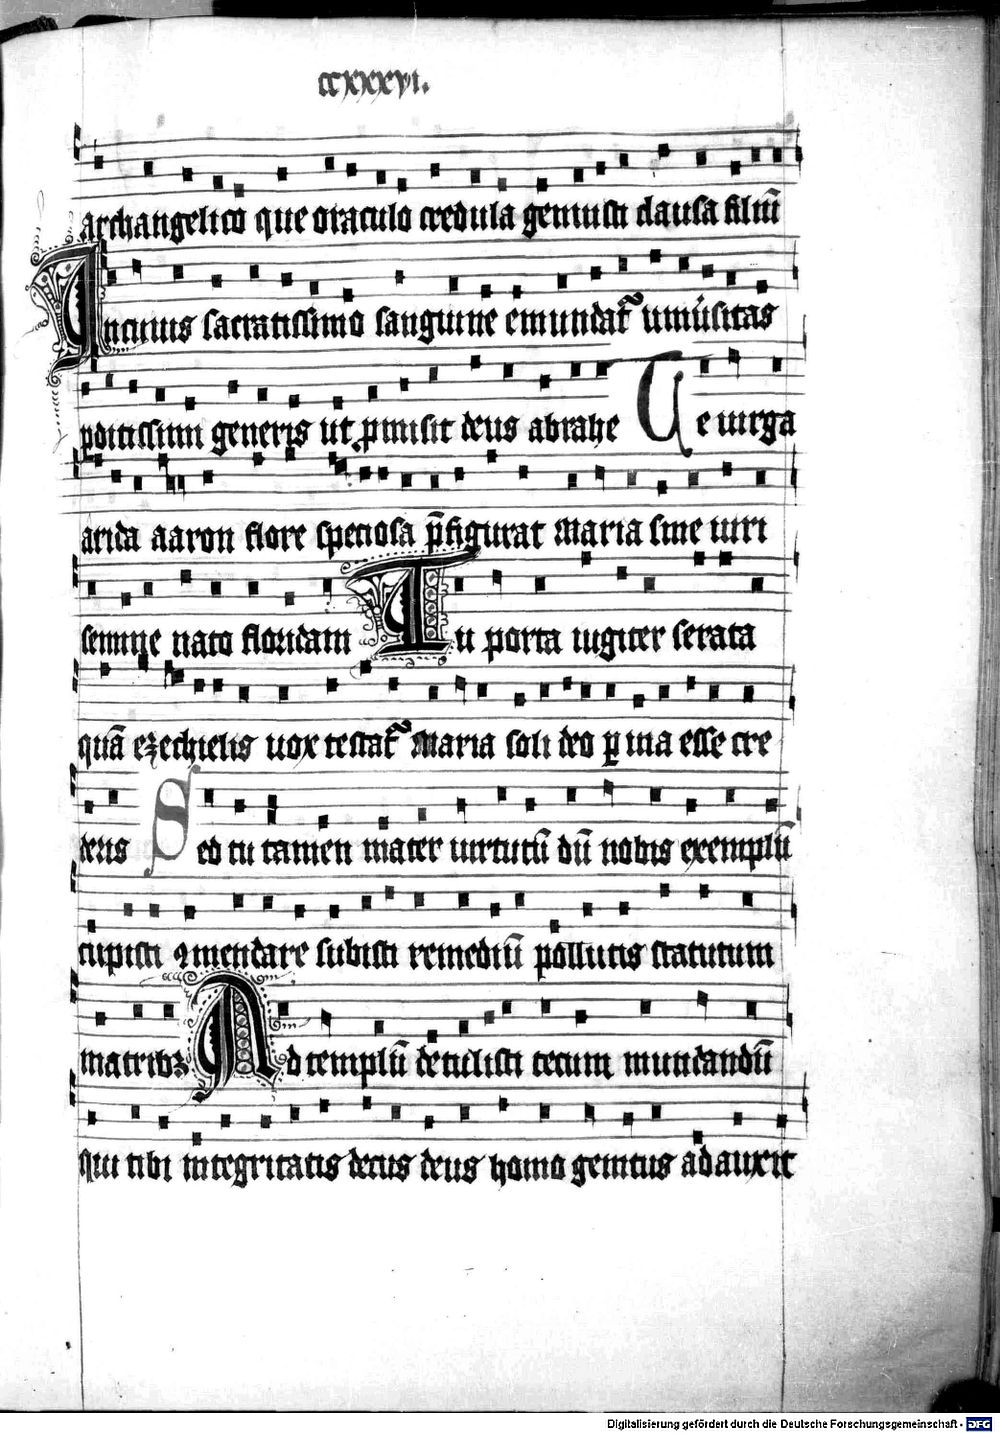 ccxxxvi.
archangelico que oraculo credula genuisti clausa filiū
In cuius sacratissimo sanguine emundat᷑ uniūsitas
pditissimi generis ut pmisit deus abrahe Te uirga
arida aaron flore speciosa p̄figurat Maria sine uiri
semine nato floridam Tu porta iugiter serata
quā ezechielis uox testat᷑ Maria soli deo puia esse cre
deris Sed tu tamen mater uirtutū dū nobis exemplū
cupisti ꝯmendare subisti remediū pollutis statutum
matribꝫ Ad templū detulisti tecum mundandū
qui tibi integritatis decus deus homo genitus adauxit
Digitalisierung gefördert durch die Deutsche Forschungsgemeinschaft - DFG